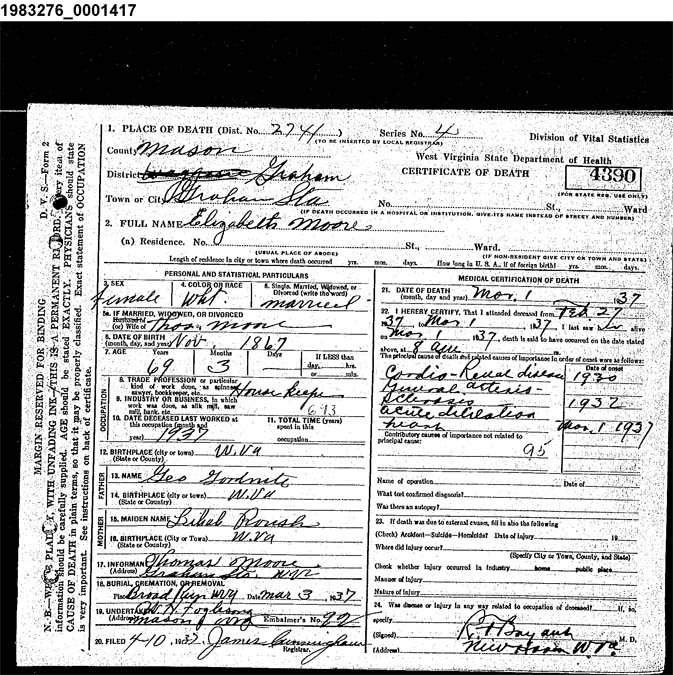 1983276_0001417
D. V. S.—Form 2
MARGIN RESERVED FOR BINDING
N. B.—WRITE PLAINLY, WITH UNFADING INK—THIS IS A PERMANENT RECORD. Every item of
information should be carefully supplied. AGE should be stated EXACTLY. PHYSICIANS should state
CAUSE OF DEATH in plain terms, so that it may be properly classified. Exact statement of OCCUPATION
is very important. See instructions on back of certificate.
1. PLACE OF DEATH (Dist. No. 2741) Series No. 4 Division of Vital Statistics
(TO BE INSERTED BY LOCAL REGISTRAR)
County Mason West Virginia State Department of Health
District Graham CERTIFICATE OF DEATH 4390
(FOR STATE REG. USE ONLY)
Town or City Graham Sta No. St., Ward
(IF DEATH OCCURRED IN A HOSPITAL OR INSTITUTION, GIVE ITS NAME INSTEAD OF STREET AND NUMBER)
2. FULL NAME Elizabeth Moore
(a) Residence. No. St., Ward.
(USUAL PLACE OF ABODE) (IF NON-RESIDENT GIVE CITY OR TOWN AND STATE)
Length of residence in city or town where death occurred yrs. mos. days. How long in U. S. A., if of foreign birth? yrs. mos. days.
PERSONAL AND STATISTICAL PARTICULARS
3. SEX 4. COLOR OR RACE 5. Single, Married, Widowed, or
Divorced (write the word)
Female Wht. married
5a. IF MARRIED, WIDOWED, OR DIVORCED
Husband of
(or) Wife of Thos. Moore
6. DATE OF BIRTH
(month, day, and year) Nov. 1867
7. AGE Years Months Days If LESS than
69 3 day, hrs.
or min.
OCCUPATION
8. TRADE PROFESSION or particular
kind of work done, as spinner,
sawyer, bookkeeper, etc. House keeper
9. INDUSTRY OR BUSINESS, in which
work was done, as silk mill, saw
mill, bank, etc.
10. DATE DECEASED LAST WORKED at
this occupation (month and
year) 1937
11. TOTAL TIME (years)
spent in this
occupation
12. BIRTHPLACE (city or town) W.Va
(State or Country)
FATHER
13. NAME Geo
14. BIRTHPLACE (city or town) W.Va
(State or Country)
MOTHER
15. MAIDEN NAME Roush
16. BIRTHPLACE (City or Town) W.Va
(State or Country)
17. INFORMANT Thomas Moore
(Address) Graham Sta. W.Va
18. BURIAL, CREMATION, OR REMOVAL
Place Broad Run W.Va Date Mar 3 1937
19. UNDERTAKER Foglesong
(Address) Mason W.Va Embalmer's No. 92
20. FILED 4-10, 1937 James Cunningham
Registrar.
MEDICAL CERTIFICATION OF DEATH
21. DATE OF DEATH
(month, day and year) Mar. 1 37
22. I HEREBY CERTIFY, That I attended deceased from Feb. 27
37, Mar 1 1937. I last saw her alive
on Mar 1937, death is said to have occurred on the date stated
above, at 8 a m.
The principal cause of death and related causes of importance in order of onset were as follows:
Date of onset
Cardio-Renal disease 1930
General arterio-
sclerosis 1932
acute dilatation
heart Mar. 1 1937
Contributory causes of importance not related to
principal cause:
95
Name of operation Date of
What test confirmed diagnosis?
Was there an autopsy?
23. If death was due to external causes, fill in also the following
(Check) Accident—Suicide—Homicide? Date of injury 19
Where did injury occur?
(Specify City or Town, County, and State)
Check whether injury occurred in Industry home public place
Manner of injury
Nature of Injury
24. Was disease or injury in any way related to occupation of deceased? If so,
specify
(Signed) M. D.
(Address) New Haven W. Va.